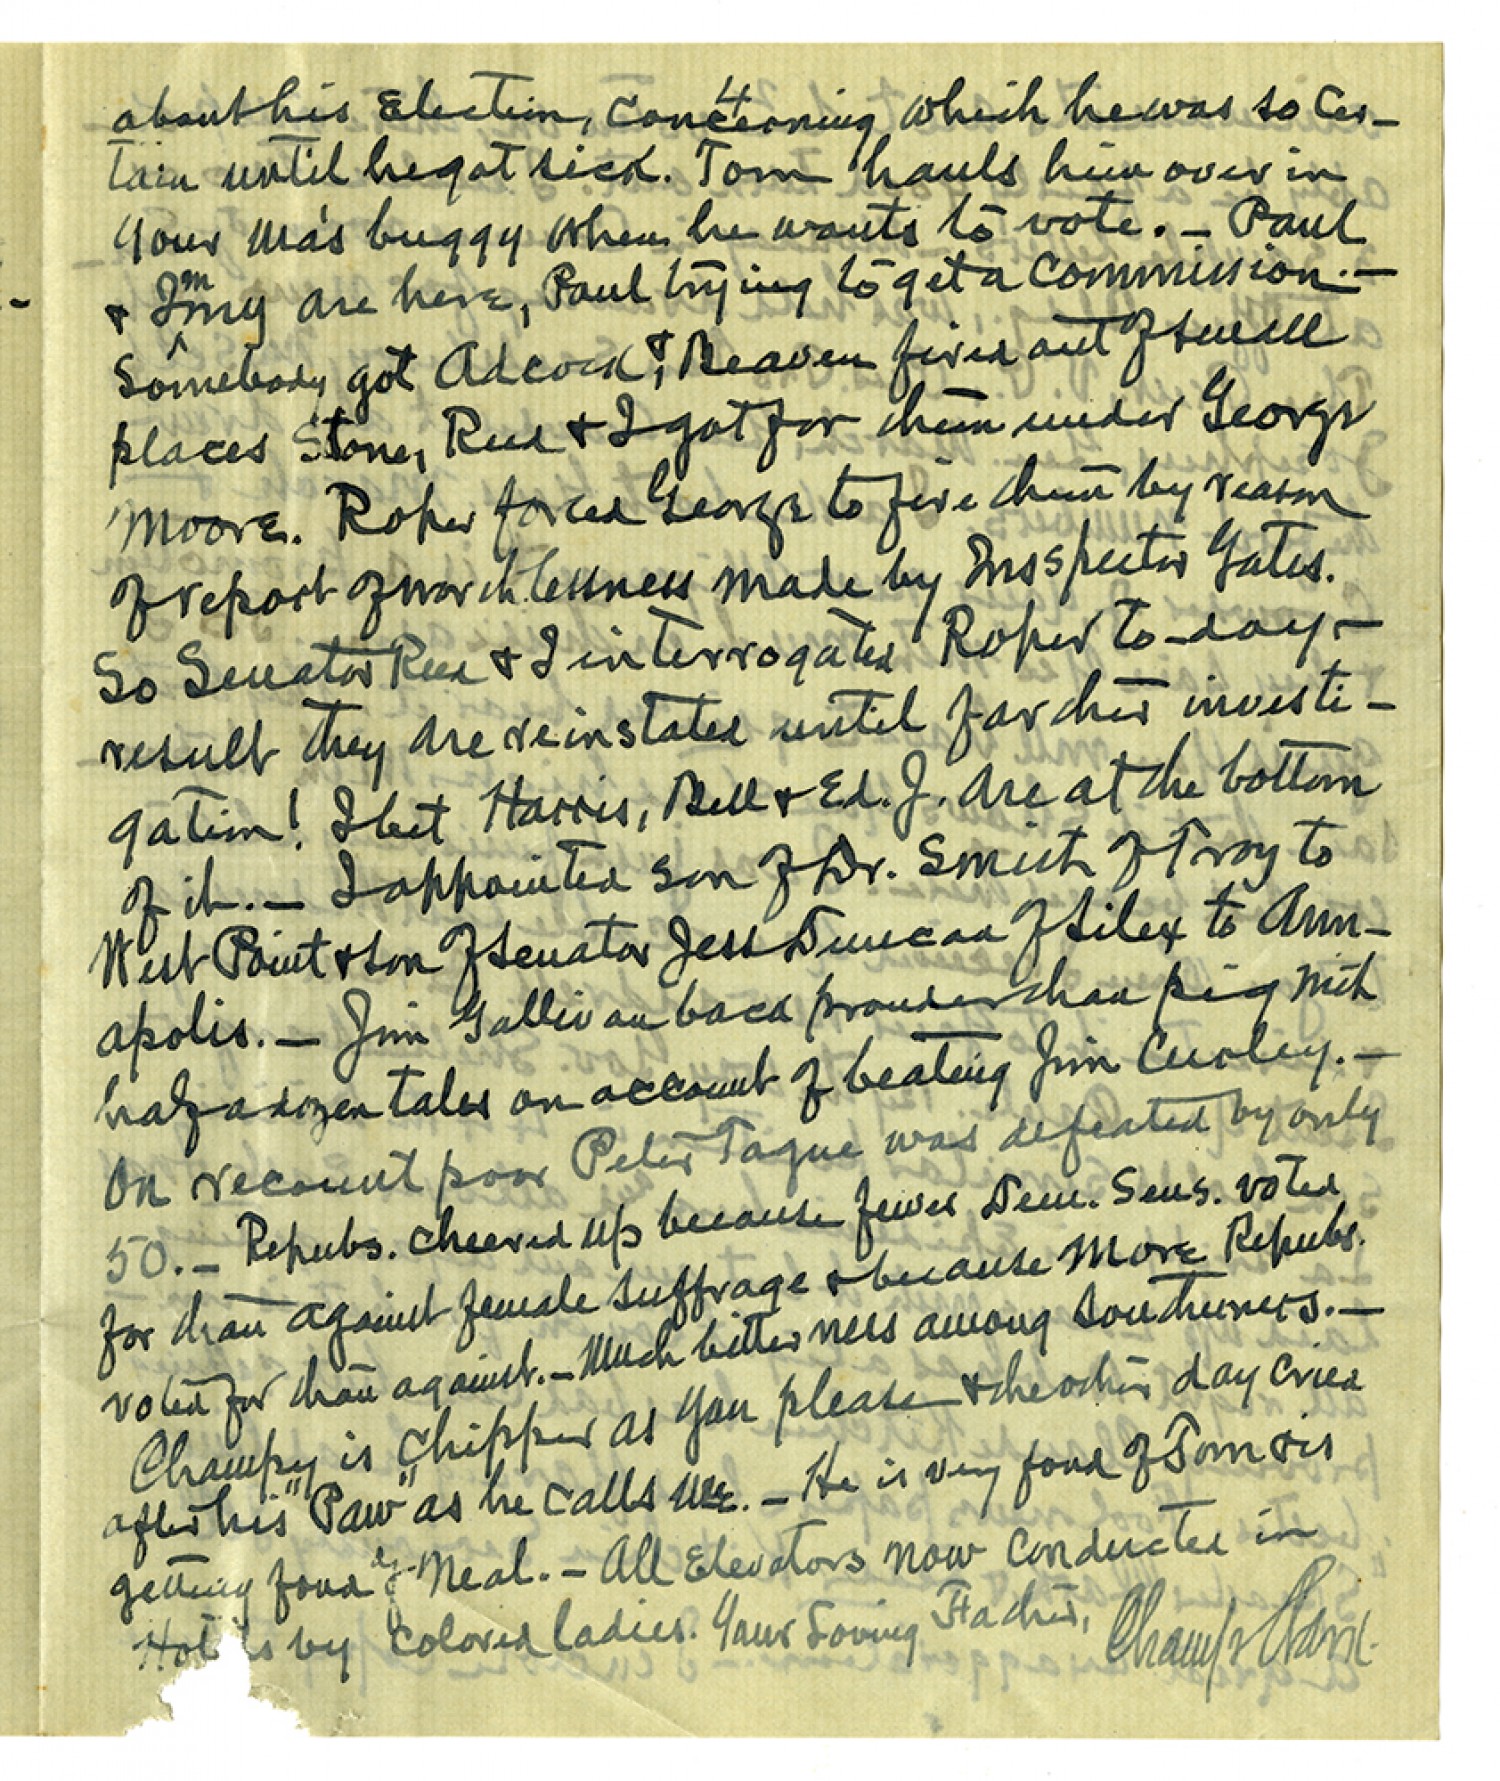 4
about his Election, concerning which he was so Cer-
tain until he got sick. Tom hauls him over in
your Ma's buggy when he wants to vote. – Paul
& Immy are here, Paul trying to get a Commission. –
Somebody got Adcock & Beaven fired out of small
places Stone, Reed & I got for them under George
Moore. Roper forced George to fire them by reason
of report of worthlessness made by Insspector Gates.
So Senator Reed & I interrogated Roper to-day –
result they are reinstated until farther investi-
gation! I bet Harris, Bell & Ed. J. are at the bottom
of it. – I appointed son of Dr. Smith of Troy to
West Point & son of Senator Jess Duncan of Silex to Ann-
apolis. – Jim Gallivan back prouder than pig with
half a dozen tales on account of beating Jim Curley. –
On recount poor Peter Tague was defeated by only
50. – Repubs. cheered up because fewer Dem. Sens. voted
for than against female suffrage & because More Repubs.
voted for than against. – Much bitterness among Southerners. –
Champy is chipper as you please & the other day cried
after his "Paw" as he calls me. – He is very fond of Tom & is
getting fond of Neal. – All Elevators now conducted in
by colored ladies. Your Loving Father, Champ Clark.